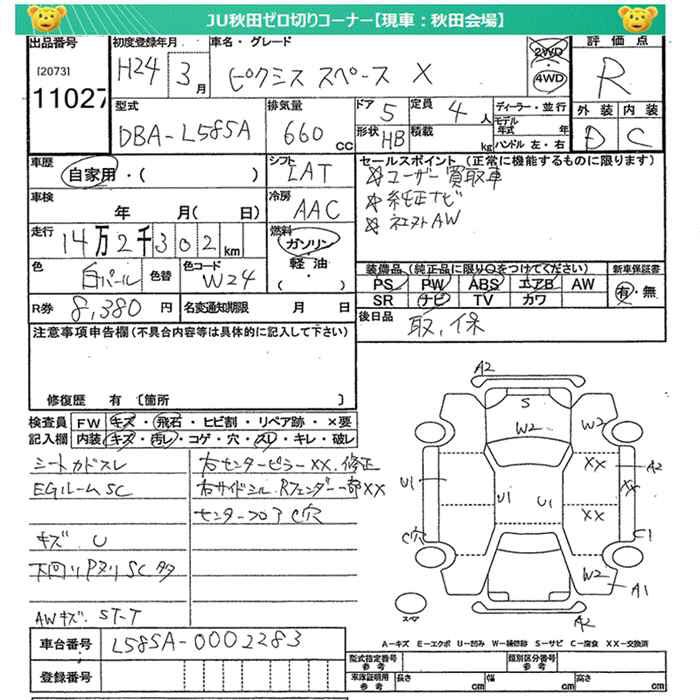 JU秋田ゼロ切りコーナー【現車：秋田会場】
出品番号 初度登録年月 車名・グレード 評価点
[2073] H24 3月 ピクシス スペース X 2WD 4WD R
11027
型式 排気量 ドア 5 定員 4人 ディーラー・並行 外装 内装
DBA-L585A 660cc 形状 HB 積載 kg モデル年式 年 D C
ハンドル 左・右
車歴 自家用・( ) シフト LAT セールスポイント (正常に機能するものに限ります)
ユーザー買取車
車検 年 月( 日) 冷房 AAC 純正ナビ
AW
走行 14万2千302km 燃料 ガソリン 軽油・
色 白パール 色替 色コード W24
装備品 (純正品に限り○をつけてください) 新車保証書
PS PW ABS エアB AW 有・無
SR ナビ TV カワ
R券 8,380円 名変通知期限 月 日 後日品 取、保
注意事項申告欄(不具合内容等は具体的に記入して下さい)
修復歴 有〔箇所 〕
検査員 FW キズ・飛石・ヒビ割・リペア跡・×要
記入欄 内装 キズ・汚レ・コゲ・穴・スレ・キレ・破レ
シートカドスレ 右センターピラーXX.修正
EGルームSC 右サイドシル.Rフェンダー一部XX
センターフロアC穴
キズ U
下回りPヌリSC多
AWキズ ST-T
A2
S
W2 W2
XX A2
U1 U1 U1 XX
XX
C穴 C1
W2 A1
スペア A2
A-キズ E-エクボ U-凹み W-補修跡 S-サビ C-腐食 XX-交換済
車台番号 L585A-0002283
登録番号
型式指定番号 参考 類別区分番号 参考
車庫証明用 参考 長さ cm 幅 cm 高さ cm